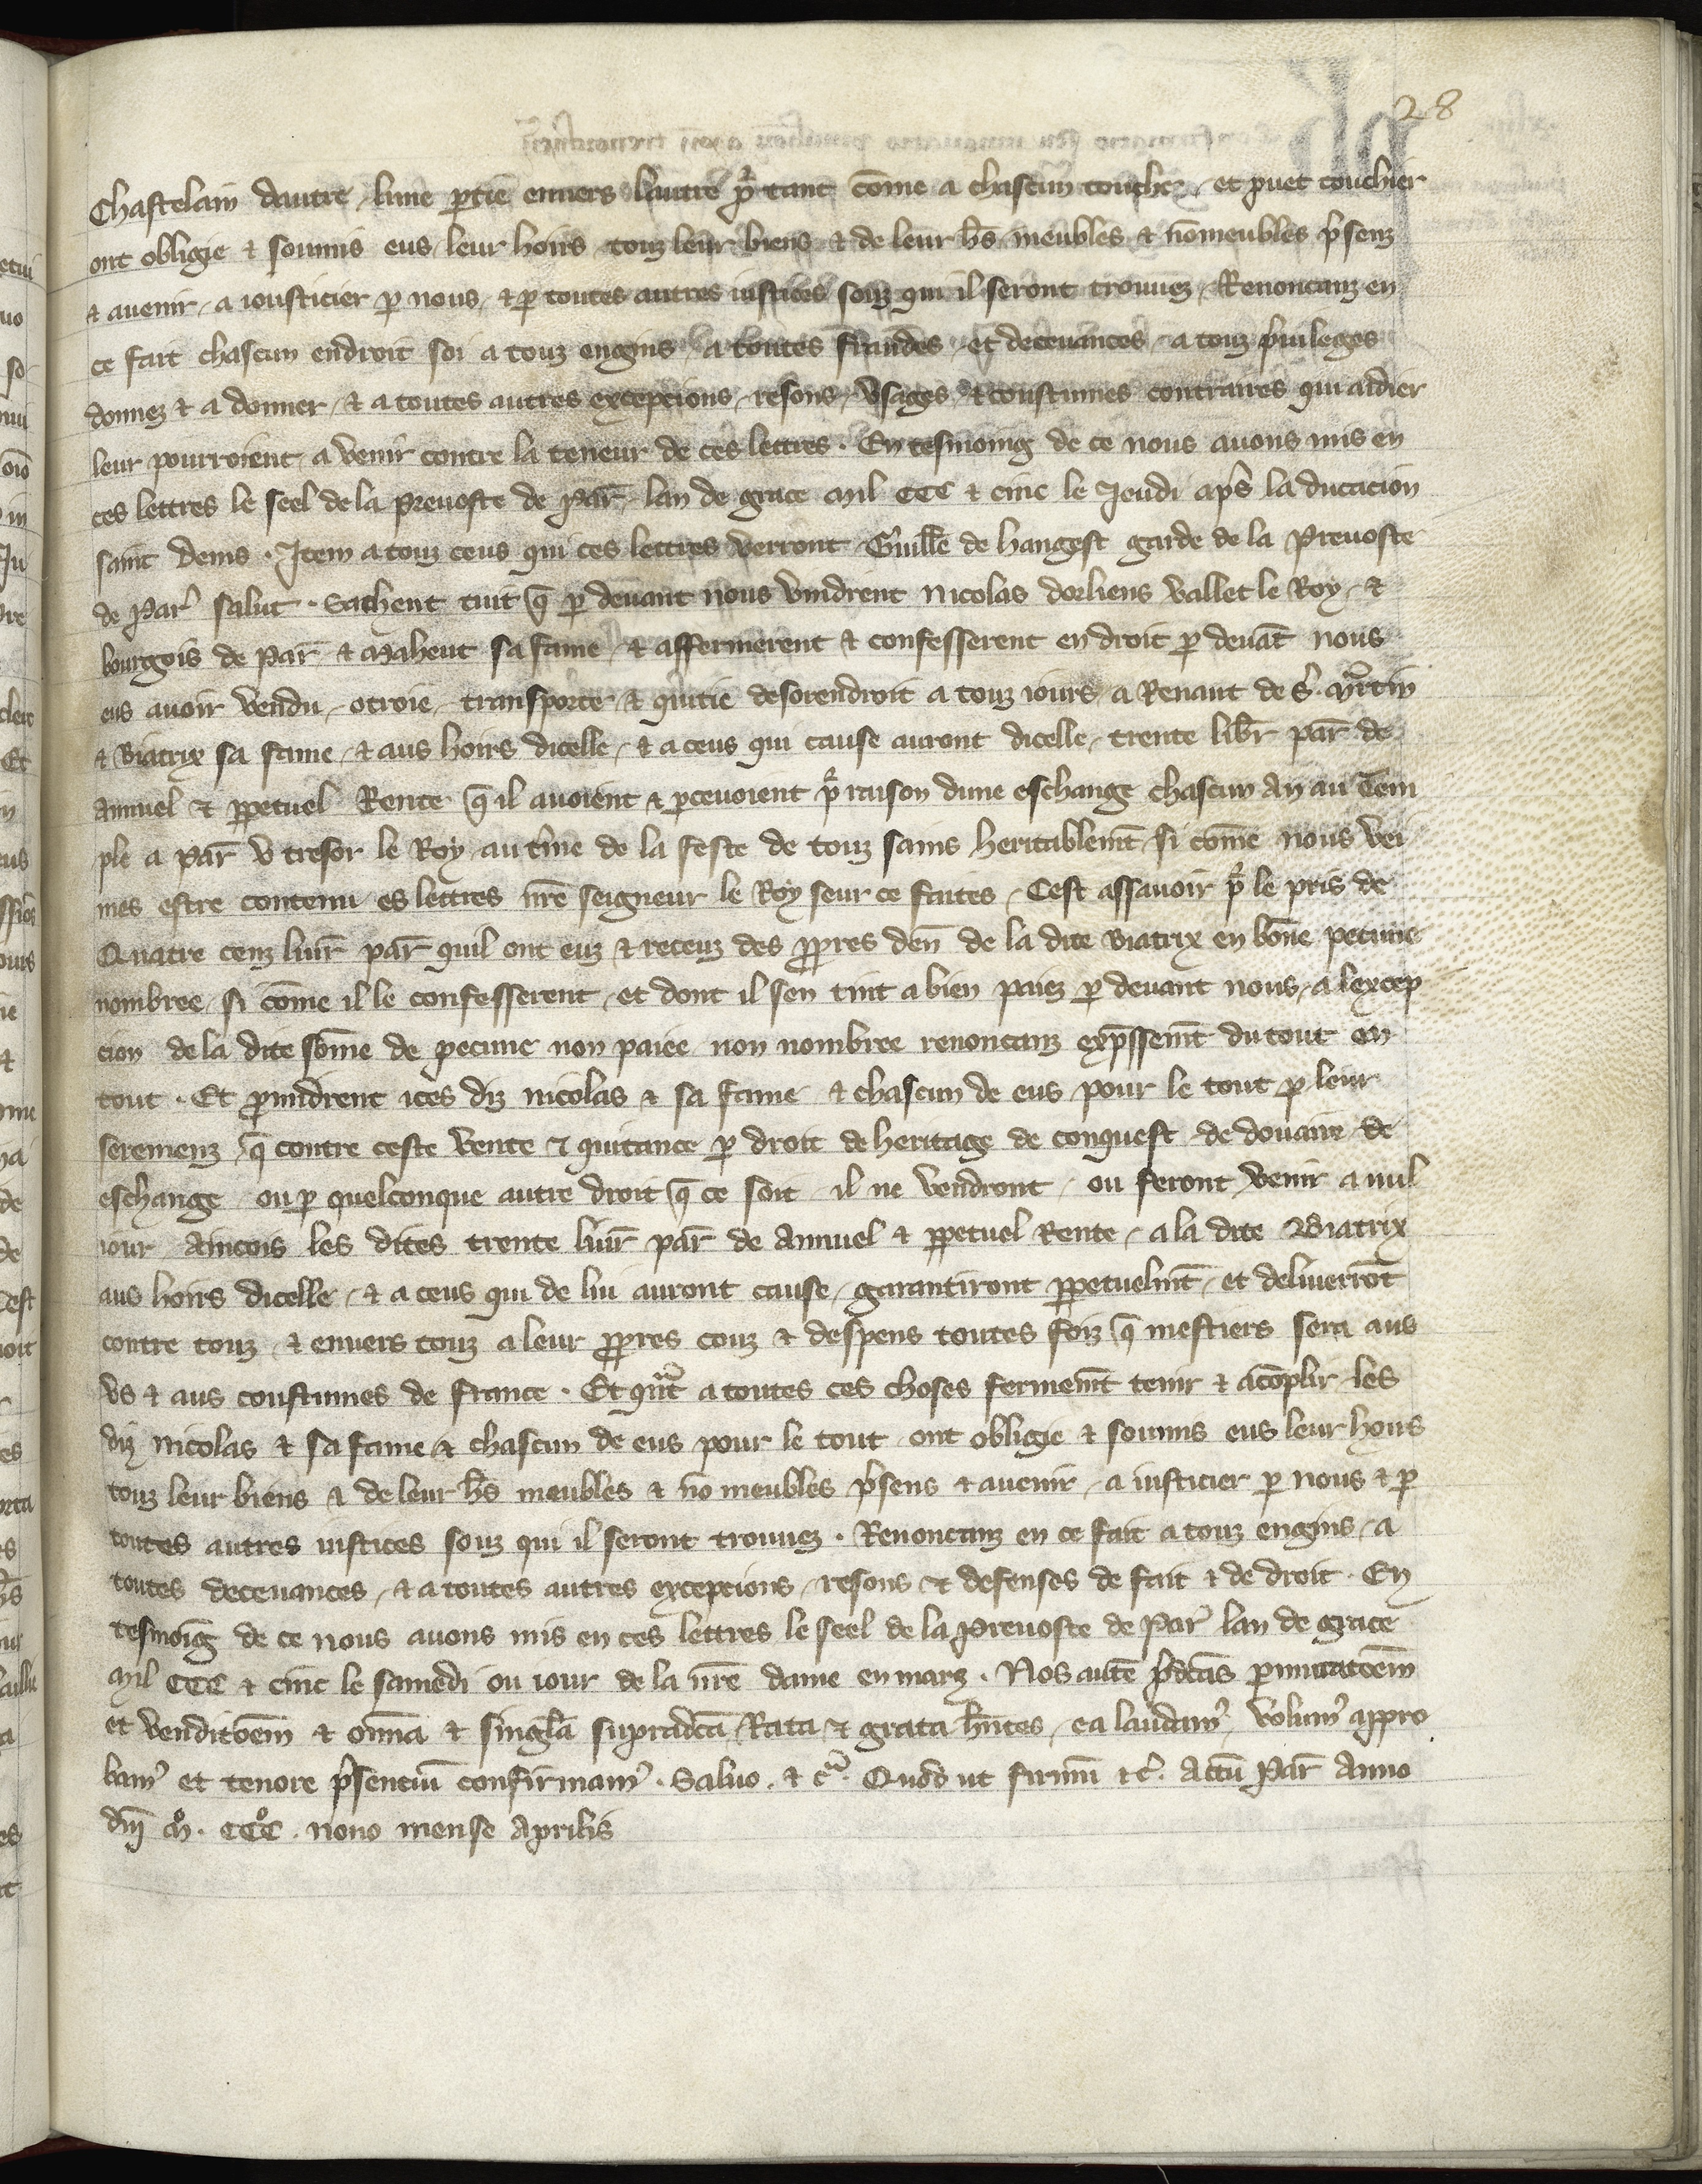 28
Chastelain dautre lune ꝑtie enuers lautre pͬ tant cōme a chascun touche et puet touchier
ont obligie ⁊ soumis eus leur hoirs touz leur biens ⁊ de leur hs̄ meubles ⁊ nōmeubles p̾senz
⁊ auenir a iousticier ꝑ nous ⁊ ꝑ toutes autres iustices souz qui il seront trouuez Renoncanz en
ce fait chascun endroit soi a touz engins a toutes fraudes et deceuances a touz p̾uileges
donnez ⁊ a donner ⁊ a toutes autres excepcions resons vsages ⁊ coustumes contraires qui aidier
leur pourroient a venir contre la teneur de ces lettres . En tesmoing de ce nous auons mis en
ces lettres le seel de la preuoste de Par̄ lan de grace Mil CCC ⁊ cinc le Jeudi ap̾s la ducacion
saint denis . Item a touz ceus qui ces lettres verront Guille̅ de hangest garde de la Preuoste
de Par̾ salut . Sachent tuit q̄ ꝑ deuant nous vindrent Nicolas dorliens vallet le Roy ⁊
bourgois de Par̄ ⁊ Maheut sa fame ⁊ affermerent ⁊ confesserent en droit ꝑ deuāt nous
eus auoir vendu otroie transporte ⁊ quitie desorendroit a touz iours a Renaut de S̾. Martin
⁊ Biatrix sa fame ⁊ aus hoirs dicelle ⁊ a ceus qui cause auront dicelle trente libr̄ par̄ de
annuel ⁊ ꝑpetuel Rente q̄ il auoient ⁊ ꝑceuoient pͬ raison dune eschange chascun An au Tem
ple a Par̄ v tresor le Roy au t̾me de la feste de touz sains heritablemt̄ si cōme nous vei
mes estre contenu es lettres nr̄e seigneur le Roy seur ce faites Cest assauoir pͬ le pris de
Quatre cenz liur̄ par̄ quil ont euz ⁊ receuz des ꝓpres den̄ de la dite Biatrix en bōne pecune
nombree si cōme il le confesserent et dont il sen tint a bien paiez ꝑ deuant nous a lexcep
cion de la dite sōme de pecune non paiee non nombree renoncanz exp̄ssemt̄ du tout en
tout . Et ꝓmidrent ices diz Nicolas ⁊ sa fame ⁊ chascun de eus pour le tout ꝑ leur
seremenz q̄ contre ceste vente ⁊ quitance ꝑ droit de heritage de conquest de douaire de
eschange ou ꝑ quelconque autre droit q̄ ce soit il ne vendront ou feront venir a nul
iour Aincois les dites trente liur̄ par̄ de Annuel ⁊ ꝑpetuel Rente a la dite Biatrix
aus hoirs dicelle ⁊ a ceus qui de lui auront cause garantiront ꝑpetuelmt̄ et deliuerrōt
contre touz ⁊ enuers touz a leur ꝓpres couz ⁊ despens toutes foiz q̄ mestiers sera aus
vs ⁊ aus coustumes de France . Et quāt a toutes ces choses fermemt̄ tenir ⁊ acōplir les
diz Nicolas ⁊ sa fame ⁊ chascun de eus pour le tout ont obligie ⁊ soumis eus leur hoirs
touz leur biens ⁊ de leur hs̄ meubles ⁊ nō meubles p̾sens ⁊ auenir a iusticier ꝑ nous ⁊ ꝑ
toutes autres iustices souz qui il seront trouuez . Renoncanz en ce fait a touz engins a
toutes deceuances ⁊ a toutes autres excepcions resons ⁊ defenses de fait ⁊ de droit . En
tesmoīg de ce nous auons mis en ces lettres le seel de la Preuoste de Par̾ lan de grace
Mil CCC ⁊ cinc le samedi ou iour de la nr̄e dame en marz . Nos autē p̾dc̄as ꝑmutatōem
et venditōem ⁊ om̄ia ⁊ singl̄a supradc̄a Rata ⁊ grata hn̄tes ea laudam̾ volum̾ appro
bam̾ et tenore p̾sentiū confirmam̾ . Saluo . ⁊ c̾ . Quod ut firmū ⁊c̾ . Actū Par̄ Anno
dn̄i Mͦ. CCCͦ . nono mense Aprilis